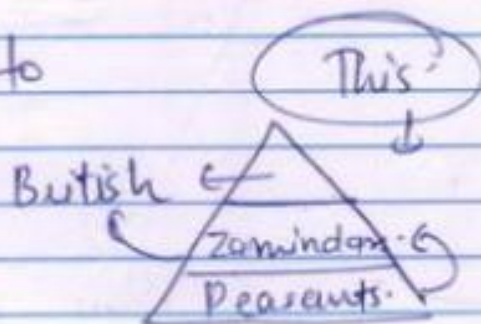 to
This
British
Zamindar.
Peasants.